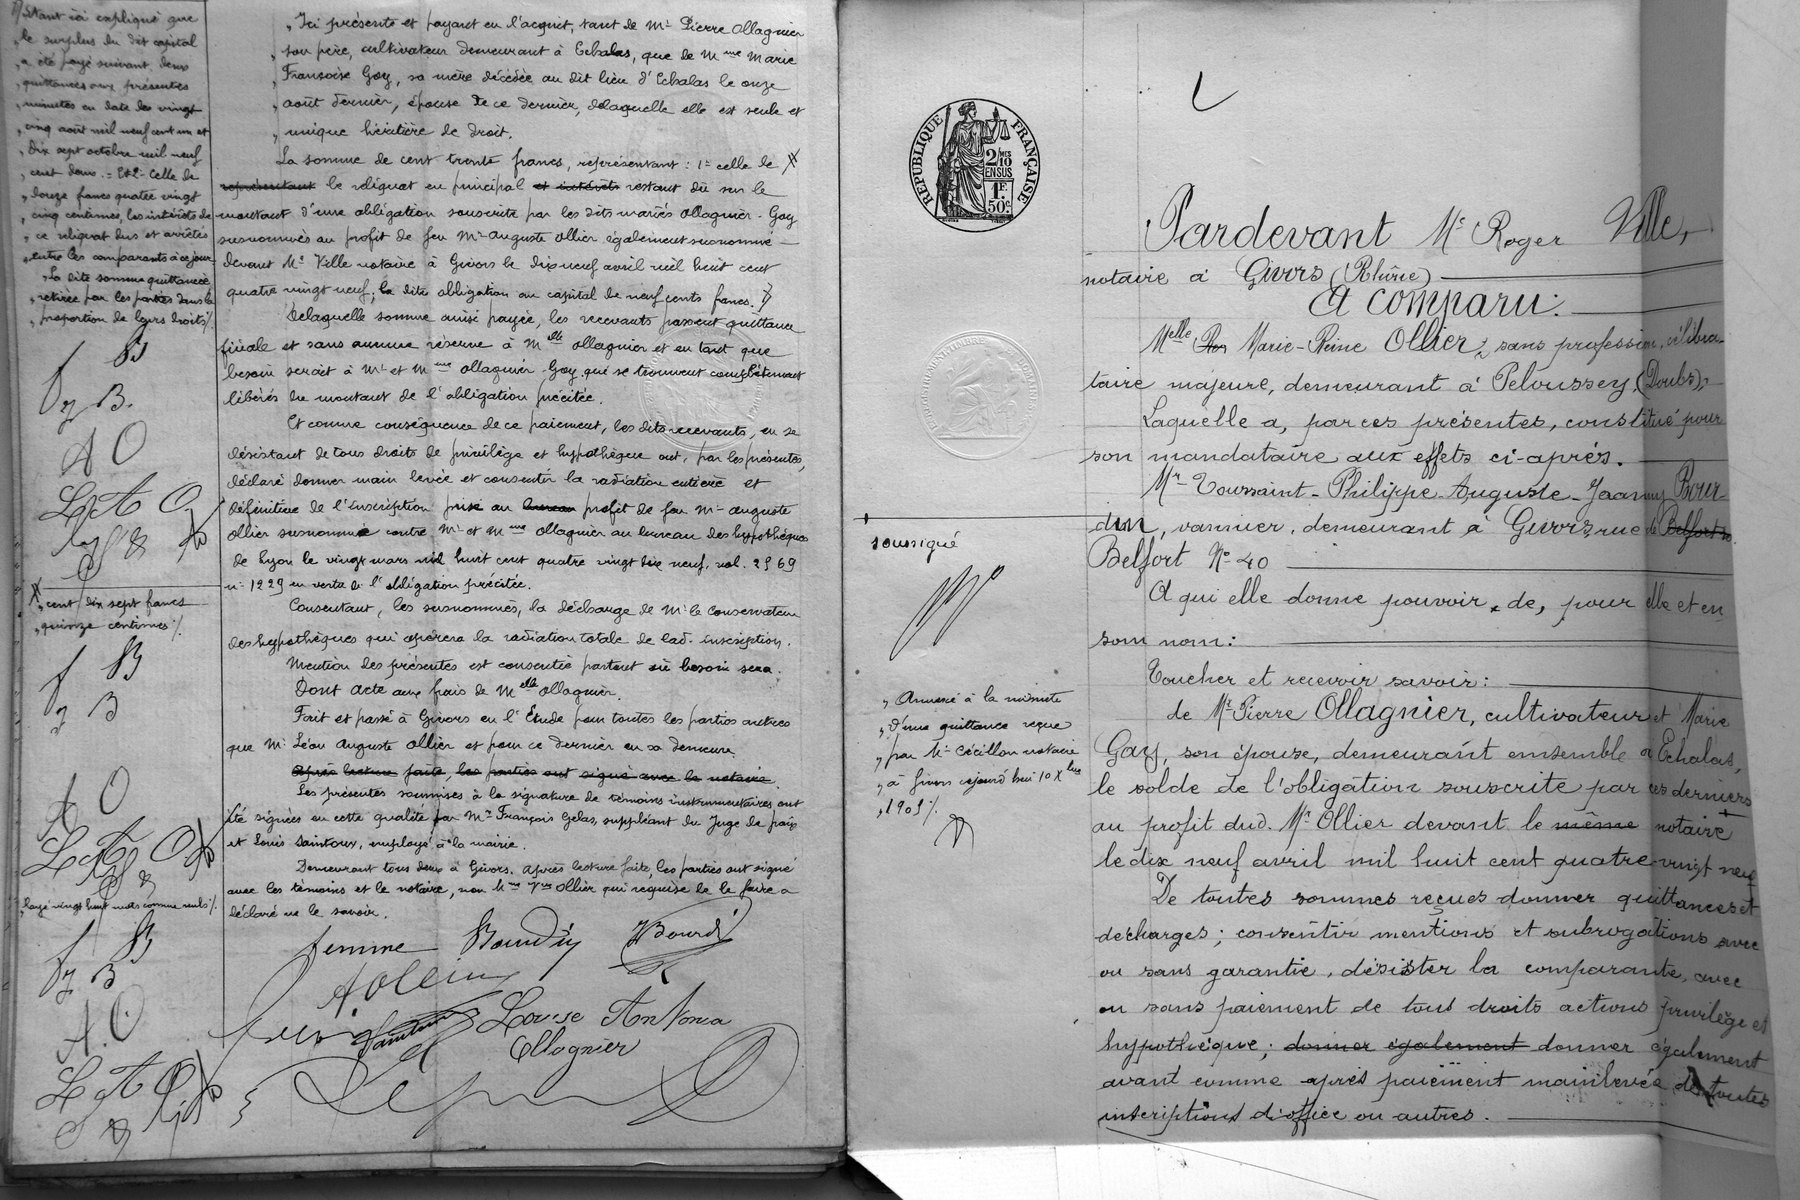 Étant ici expliqué que
le surplus du dit capital
a été payé suivant deux
quittances aux présentes
minutes en date des vingt
cinq août mil neuf cent un et
dix sept octobre mil neuf
cent deux. = Et 2° celle de
douze francs quatre vingt
cinq centimes, les intérêts de
ce reliquat dus et arrêtés
entre les comparants à ce jour.
La dite somme quittancée
retirée par les parties dans la
proportion de leurs droits ./.
f B
J B.
A O
L A O
cent dix sept francs
quinze centimes ./.
f B
J B
A O
L A O
Rayé vingt huit mots comme nuls ./.
f B
J B
A. O.
L A O
„ Ici présente et payant en l'acquit, tant de Mr Pierre Ollagnier
„ son père, cultivateur demeurant à Echalas, que de Mme Marie
„ Françoise Goy, sa mère décédée au dit lieu d'Echalas le onze
„ août dernier, épouse de ce dernier, delaquelle elle est seule et
„ unique héritière de droit.
La somme de cent trente francs, représentant : 1° celle de
représentant le reliquat en principal et intérêts restant dû sur le
montant d'une obligation souscrite par les dits mariés Ollagnier-Goy
susnommés au profit de feu Mr Auguste Ollier également susnommé
devant Me Ville notaire à Givors le dix neuf avril mil huit cent
quatre vingt neuf; la dite obligation au capital de neuf cents francs.
Delaquelle somme ainsi payée, les recevants passent quittance
finale et sans aucune réserve à Melle Ollagnier et en tant que
besoin serait à Mr et Mme Ollagnier-Goy qui se trouvent complètement
libérés du montant de l'obligation précitée.
Et comme conséquence de ce paiement, les dits recevants, en se
désistant de tous droits de privilège et hypothèque ont, par les présentes,
déclaré donner main levée et consentir la radiation entière et
définitive de l'inscription prise au bureau profit de feu Mr Auguste
Ollier susnommé contre Mr et Mme Ollagnier au bureau des hypothèques
de Lyon le vingt mars mil huit cent quatre vingt dix neuf, vol. 2569
n° 1229 en vertu de l'obligation précitée.
Consentant, les susnommés, la décharge de Mr le Conservateur
des hypothèques qui opérera la radiation totale de lad. inscription.
Mention des présentes est consentie partout où besoin sera.
Dont acte aux frais de Melle Ollagnier.
Fait et passé à Givors en l'Etude pour toutes les parties autres
que Mr Léon Auguste Ollier et pour ce dernier en sa demeure
Après lecture faite, les parties ont signé avec le notaire.
Les présentes soumises à la signature de témoins instrumentaires ont
été signées en cette qualité par Mr François Gelas, suppléant du Juge de paix
et Louis Saintoux, employé à la mairie.
Demeurant tous deux à Givors. Après lecture faite, les parties ont signé
avec les témoins et le notaire, non Mme Vve Ollier qui requise de le faire a
déclaré ne le savoir.
femme Bourdin JBourdin
A Ollier
Louise Antonia
Ollagnier
RÉPUBLIQUE FRANÇAISE
2/10 MES
EN SUS
1F.
50c.
Pardevant Me Roger Ville,
notaire à Givors (Rhône)
A comparu:
Melle Ren Marie-Reine Ollier, sans profession, céliba-
taire majeure, demeurant à Peloussey (Doubs),
Laquelle a, par ces présentes, constitué pour
son mandataire aux effets ci-après.
Mr Toussaint-Philippe-Auguste-Joanny Bour-
din, vannier, demeurant à Givors, rue de Belfort n
Belfort No 40
A qui elle donne pouvoir de, pour elle et en
son nom:
Toucher et recevoir savoir:
de Mr Pierre Ollagnier, cultivateur et Marie
Gay, son épouse, demeurant ensemble à Echalas,
le solde de l'obligation souscrite par ces derniers
au profit dud. Mr Ollier devant le même notaire
le dix neuf avril mil huit cent quatre-vingt neuf
De toutes sommes reçues donner quittances et
décharges; consentir mentions et subrogations avec
ou sans garantie, désister la comparante, avec
ou sans paiement de tous droits actions privilège et
hypothèque; donner également donner également
avant comme après paiement mainlevée de toutes
inscriptions d'office ou autres.
soussigné
„ Annexé à la minute
„ d'une quittance reçue
„ par Me Cécillon notaire
„ à Givors cejourd'hui 10 Xbre
„ 1903 ./.